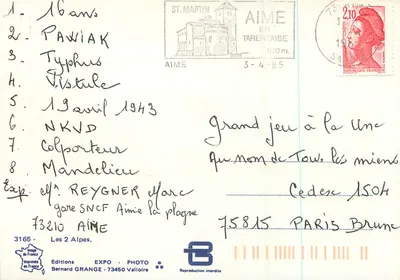 1. 16 ans
2 PAWIAK
3. Typhus
4. Vistule
5 19 avril 1943
6 NKVD
7 Colporteur
8 Mandelieu
Exp. Mr REYGNER Marc
gare SNCF Aimie la plagne
73210 AIME
3165 - Les 2 Alpes.
ST. MARTIN
AIME
EN
TARENTAISE
AIME
3-4-85
2,10
Grand jeu à la Une
Au nom de Tous les miens
Cedex 1504
75815 PARIS Brune
Editions EXPO - PHOTO
Bernard GRANGE - 73450 Valloire
Reproduction interdite